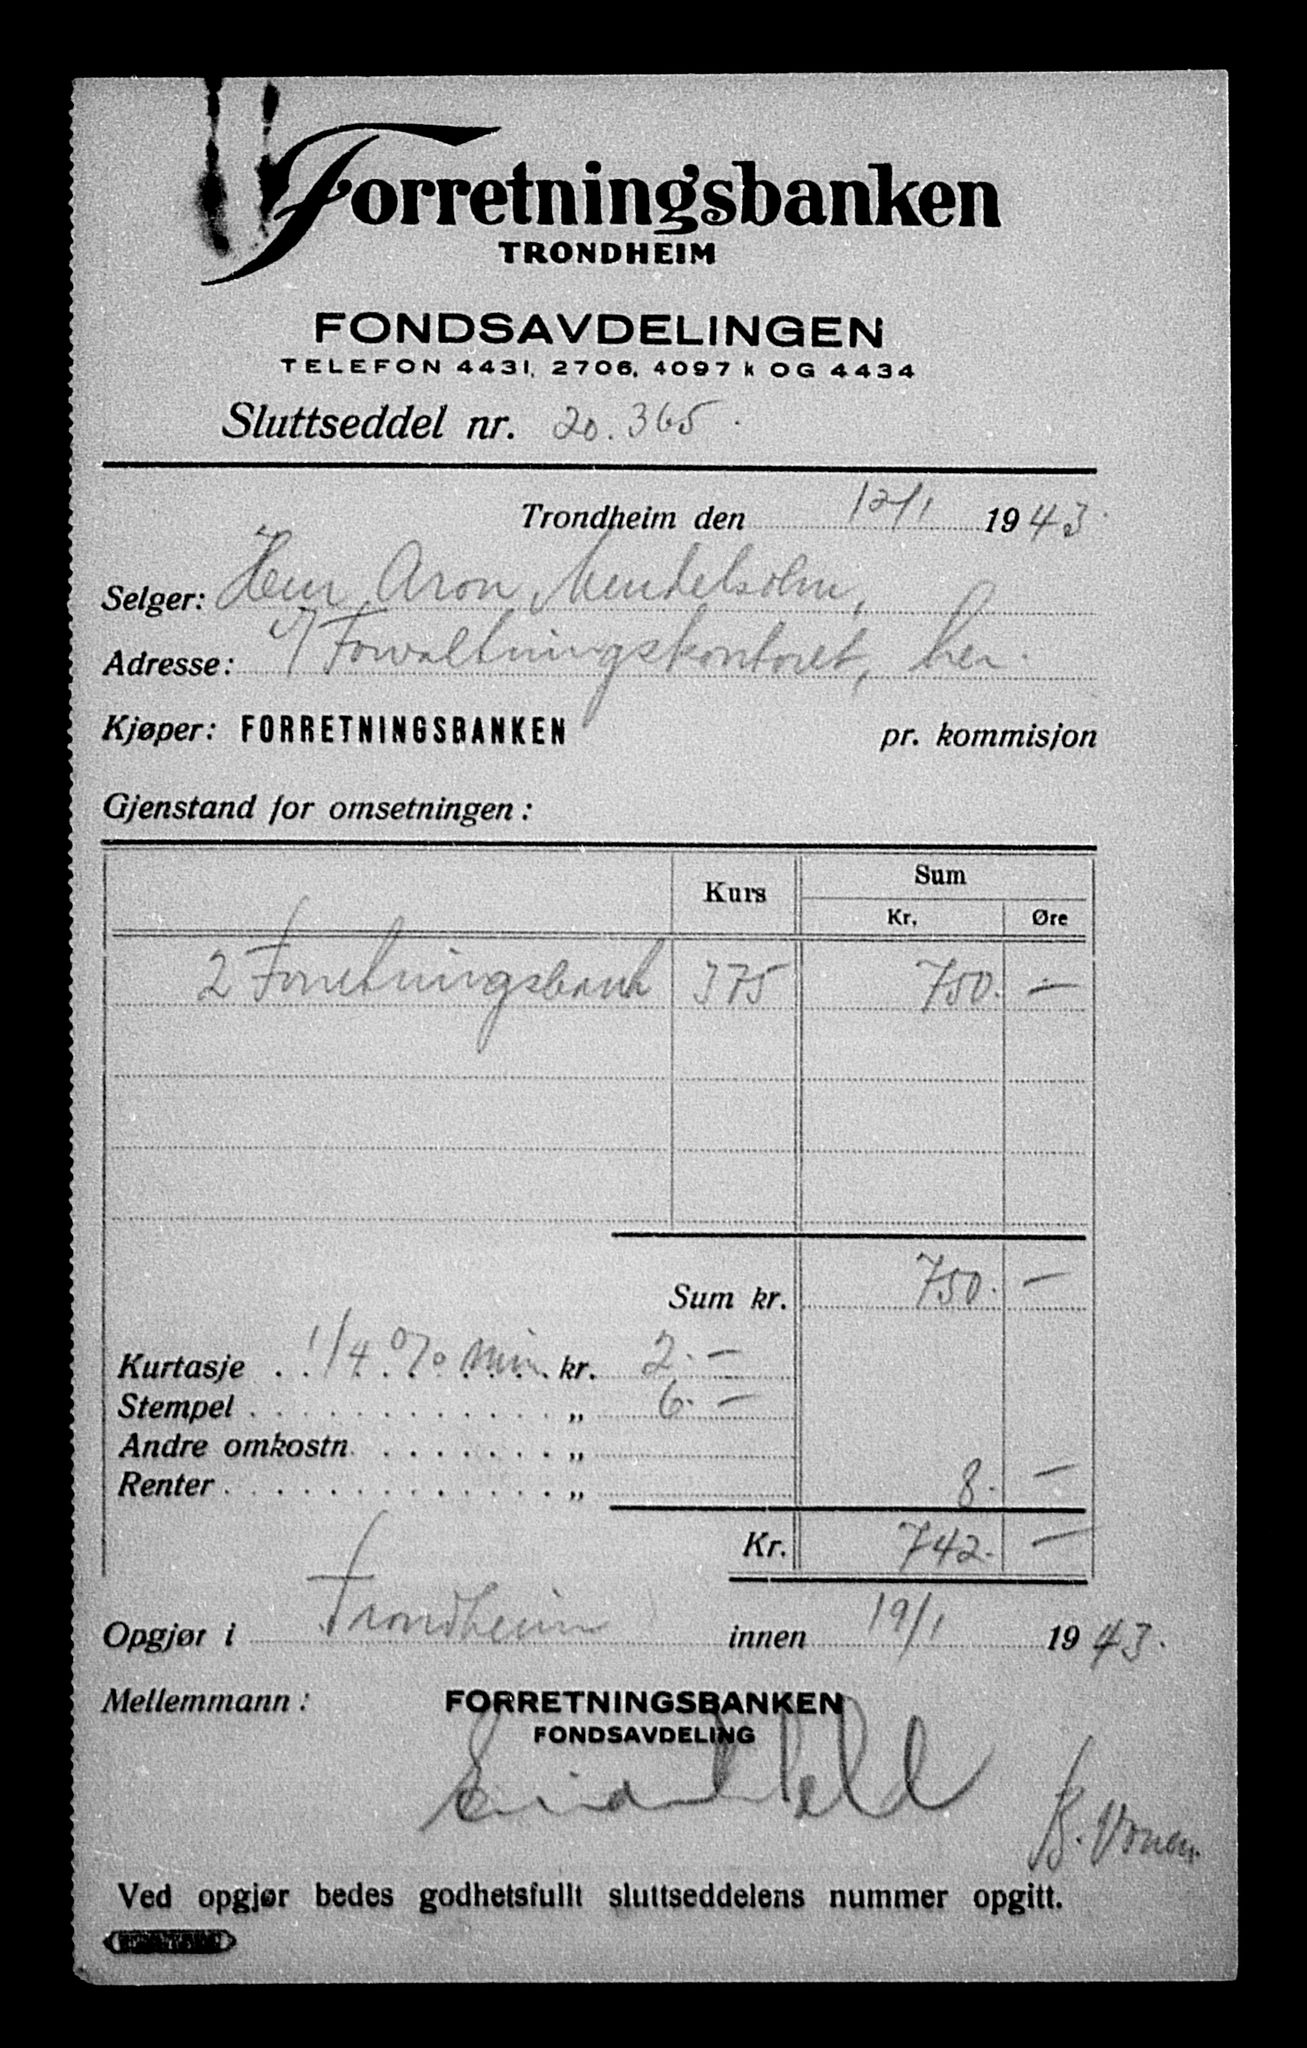 Forretningsbanken
TRONDHEIM
FONDSAVDELINGEN
TELEFON 4431, 2706, 4097 k OG 4434
Sluttseddel nr. 20.365.
Trondheim den 12/1 1943.
Selger: Herr Aron Mendelsohn,
Adresse: Forvaltningskontoret, her.
Kjøper: FORRETNINGSBANKEN pr. kommisjon
Gjenstand for omsetningen:
Kurs Sum
Kr. Øre
2 Forretningsbank 375 750. —
Sum kr. 750. —
Kurtasje . . 1/4 % min. kr. 2. —
Stempel . . . . . . . . . . . . . „ 6. —
Andre omkostn. . . . . . . . „
Renter . . . . . . . . . . . . . . „ 8. —
Kr. 742. —
Opgjør i Trondheim innen 19/1 1943.
Mellemmann: FORRETNINGSBANKEN
FONDSAVDELING
Ved opgjør bedes godhetsfullt sluttseddelens nummer opgitt.